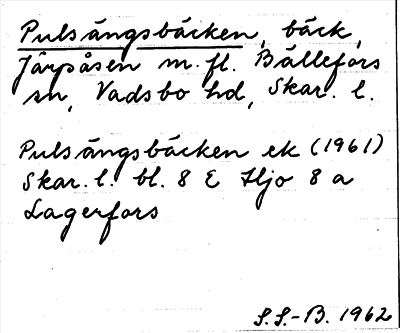 Pulsängsbäcken, bäck,
Järpåsen m.fl. Bällefors
sn, Vadsbo hd, Skar. l.
Pulsängsbäcken ek (1961)
Skar. l. bl. 8 E Hjo 8 a
Lagerfors
S.S.-B. 1962